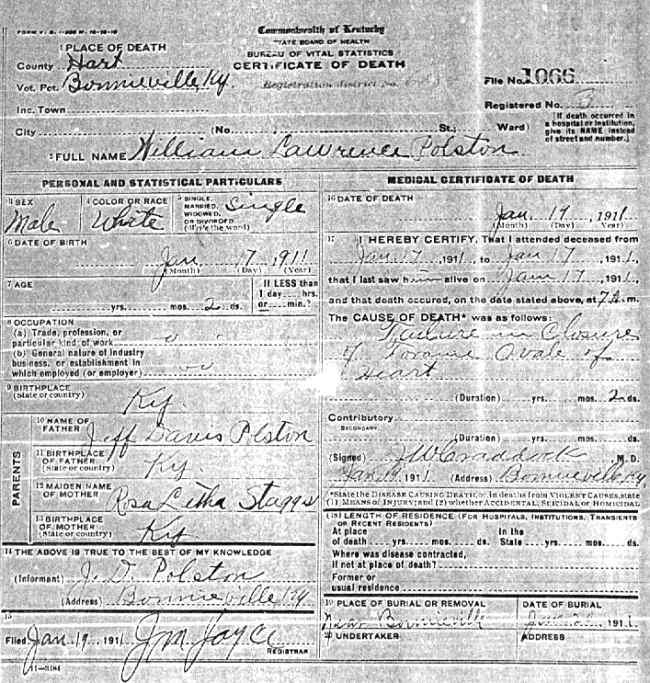 Commonwealth of Kentucky
STATE BOARD OF HEALTH
BUREAU OF VITAL STATISTICS
CERTIFICATE OF DEATH
Registration District No.
1 PLACE OF DEATH
County Hart
Vot. Pct. Bonnieville Ky.
Inc. Town
City (No. St.; Ward)
File No. 1066
Registered No. 3
[If death occurred in
a hospital or institution,
give its NAME instead
of street and number.]
2 FULL NAME William Lawrence Polston
PERSONAL AND STATISTICAL PARTICULARS
3 SEX
Male
4 COLOR OR RACE
White
5 SINGLE,
MARRIED,
WIDOWED,
OR DIVORCED
(Write the word)
Single
6 DATE OF BIRTH
Jan 17 1911
(Month) (Day) (Year)
7 AGE
yrs. mos. 2 ds.
If LESS than
1 day hrs.
or min.?
8 OCCUPATION
(a) Trade, profession, or
particular kind of work
(b) General nature of industry
business, or establishment in
which employed (or employer)
9 BIRTHPLACE
(State or country) Ky
PARENTS
10 NAME OF
FATHER Jeff Davis Polston
11 BIRTHPLACE
OF FATHER
(State or country) Ky
12 MAIDEN NAME
OF MOTHER Rosa Staggs
13 BIRTHPLACE
OF MOTHER
(State or country) Ky
14 THE ABOVE IS TRUE TO THE BEST OF MY KNOWLEDGE
(Informant) J. D. Polston
(Address) Bonnieville Ky.
15
Filed Jan 19 1911
REGISTRAR
MEDICAL CERTIFICATE OF DEATH
16 DATE OF DEATH
Jan 19, 1911
(Month) (Day) (Year)
17 I HEREBY CERTIFY, That I attended deceased from
Jan 17, 1911, to Jan 17, 1911,
that I last saw him alive on Jan 17, 1911,
and that death occured, on the date stated above, at 7 A.m.
The CAUSE OF DEATH* was as follows:
Failure in Closure
of Forame Ovale of
Heart
(Duration) yrs. mos. 2 ds.
Contributory
SECONDARY
(Duration) yrs. mos. ds.
(Signed) J W Craddock M. D.
Jan 19 1911 (Address) Bonnieville Ky.
*State the DISEASE CAUSING DEATH, or, in deaths from VIOLENT CAUSES, state
(1) MEANS OF INJURY; and (2) whether ACCIDENTAL, SUICIDAL OR HOMICIDAL
(18) LENGTH OF RESIDENCE (FOR HOSPITALS, INSTITUTIONS, TRANSIENTS
OR RECENT RESIDENTS)
At place
of death yrs. mos. ds.
In the
State yrs. mos. ds.
Where was disease contracted,
if not at place of death?
Former or
usual residence
19 PLACE OF BURIAL OR REMOVAL
Near Bonnieville
DATE OF BURIAL
1911
20 UNDERTAKER
ADDRESS